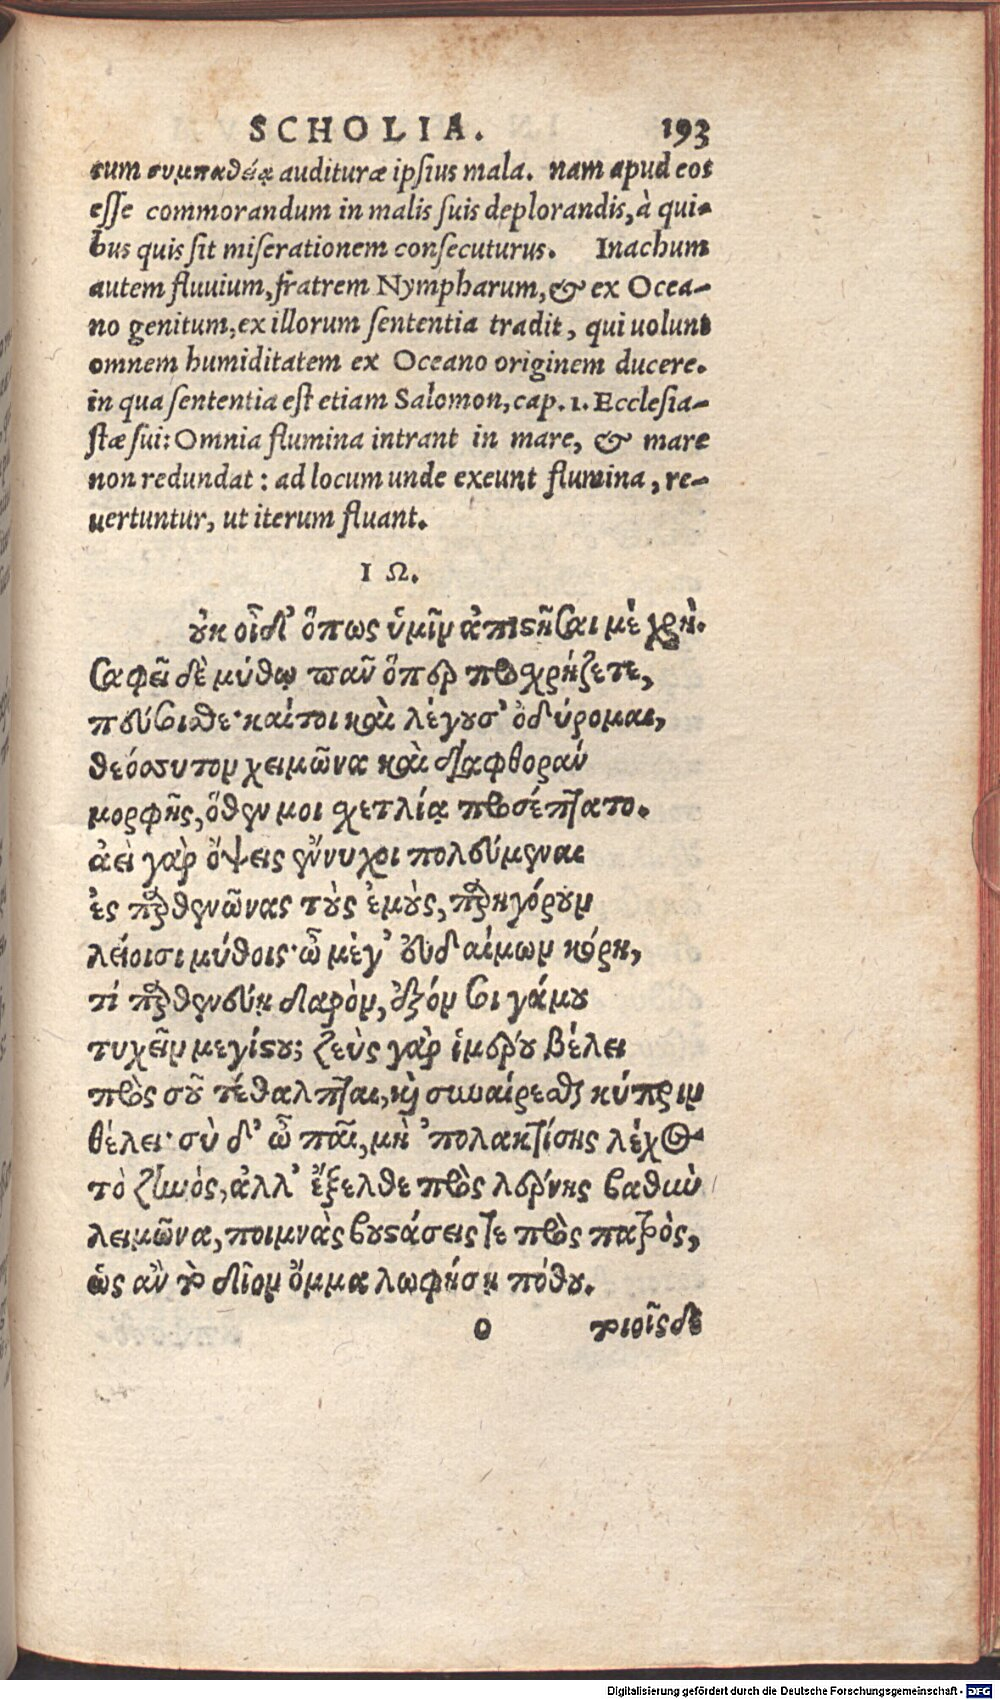 SCHOLIA. 193
tum συμπαθείᾳ audituræ ipsius mala. nam apud eos
esse commorandum in malis suis deplorandis, à qui-
bus quis sit miserationem consecuturus. Inachum
autem fluuium, fratrem Nympharum, & ex Ocea-
no genitum, ex illorum sententia tradit, qui uolunt
omnem humiditatem ex Oceano originem ducere.
in qua sententia est etiam Salomon, cap. 1. Ecclesia-
stæ sui: Omnia flumina intrant in mare, & mare
non redundat: ad locum unde exeunt flumina, re-
uertuntur, ut iterum fluant.
ΙΩ.
οὐκ οἶδ' ὅπως ὑμῖν ἀπιστῆσαι μὲ χρὴ.
σαφεῖ δὲ μύθῳ πᾶν ὅπερ προχρῄζετε,
πεύσεσθε· καίτοι καὶ λέγουσ' ὀδύρομαι,
θεόσσυτον χειμῶνα καὶ διαφθορὰν
μορφῆς, ὅθεν μοι σχετλίᾳ προσέπτατο.
ἀεὶ γὰρ ὄψεις ἔννυχοι πολεύμεναι
ἐς παρθενῶνας τοὺς ἐμοὺς, παρηγόρουν
λείοισι μύθοις· ὦ μὲγ' εὐδαίμων κόρη,
τί παρθενεύῃ δαρὸν, ἐξόν σοι γάμου
τυχεῖν μεγίστου; ζεὺς γὰρ ἱμέρου βέλει
πρὸς σοῦ τέθαλπται, καὶ συναίρεσθαι κύπριν
θέλει· σὺ δ' ὦ παῖ, μὴ 'πολακτίσῃς λέχος
τὸ ζηνὸς, ἀλλ' ἔξελθε πρὸς λέρνης βαθὺν
λειμῶνα, ποίμνας βουστάσεις τε πρὸς πατρὸς,
ὡς ἂν τὸ δῖον ὄμμα λωφήσῃ πόθου.
o τοιοῖσδε
Digitalisierung gefördert durch die Deutsche Forschungsgemeinschaft - DFG